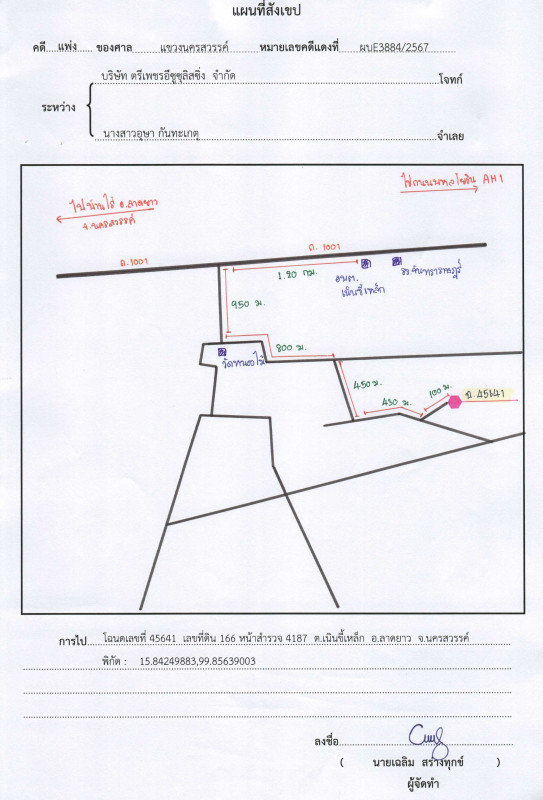 แผนที่สังเขป
คดี แพ่ง ของศาล แขวงนครสวรรค์ หมายเลขคดีแดงที่ ผบE3884/2567
บริษัท ตรีเพชรอีซูซุลิสซิ่ง จำกัด โจทก์
ระหว่าง
นางสาวอุษา กันทะเกตุ จำเลย
ไปบ้านไร่ อ.ลาดยาว
จ.นครสวรรค์
ไปถนนพหลโยธิน AH1
ถ.1001
ถ. 1001
1.20 กม.
อบต.
เนินขี้เหล็ก
950 ม.
800 ม.
450 ม.
430 ม.
100 ม.
ฉ.45641
การไป โฉนดเลขที่ 45641 เลขที่ดิน 166 หน้าสำรวจ 4187 ต.เนินขี้เหล็ก อ.ลาดยาว จ.นครสวรรค์
พิกัด : 15.84249883,99.85639003
ลงชื่อ
( นายเฉลิม สร้างทุกข์ )
ผู้จัดทำ